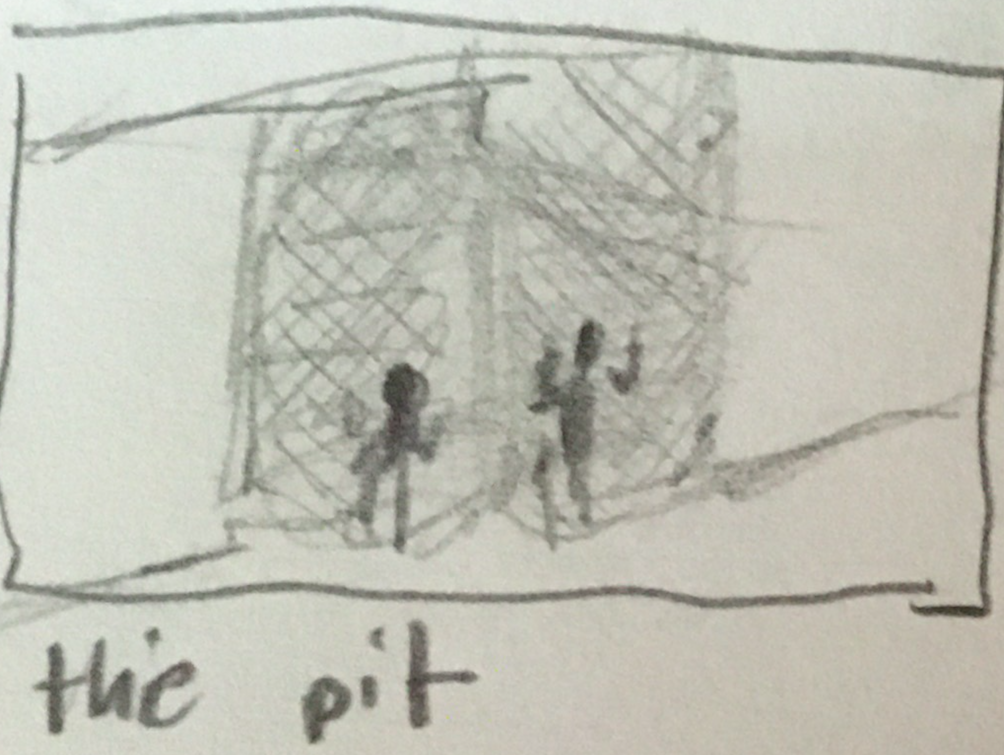 the pit